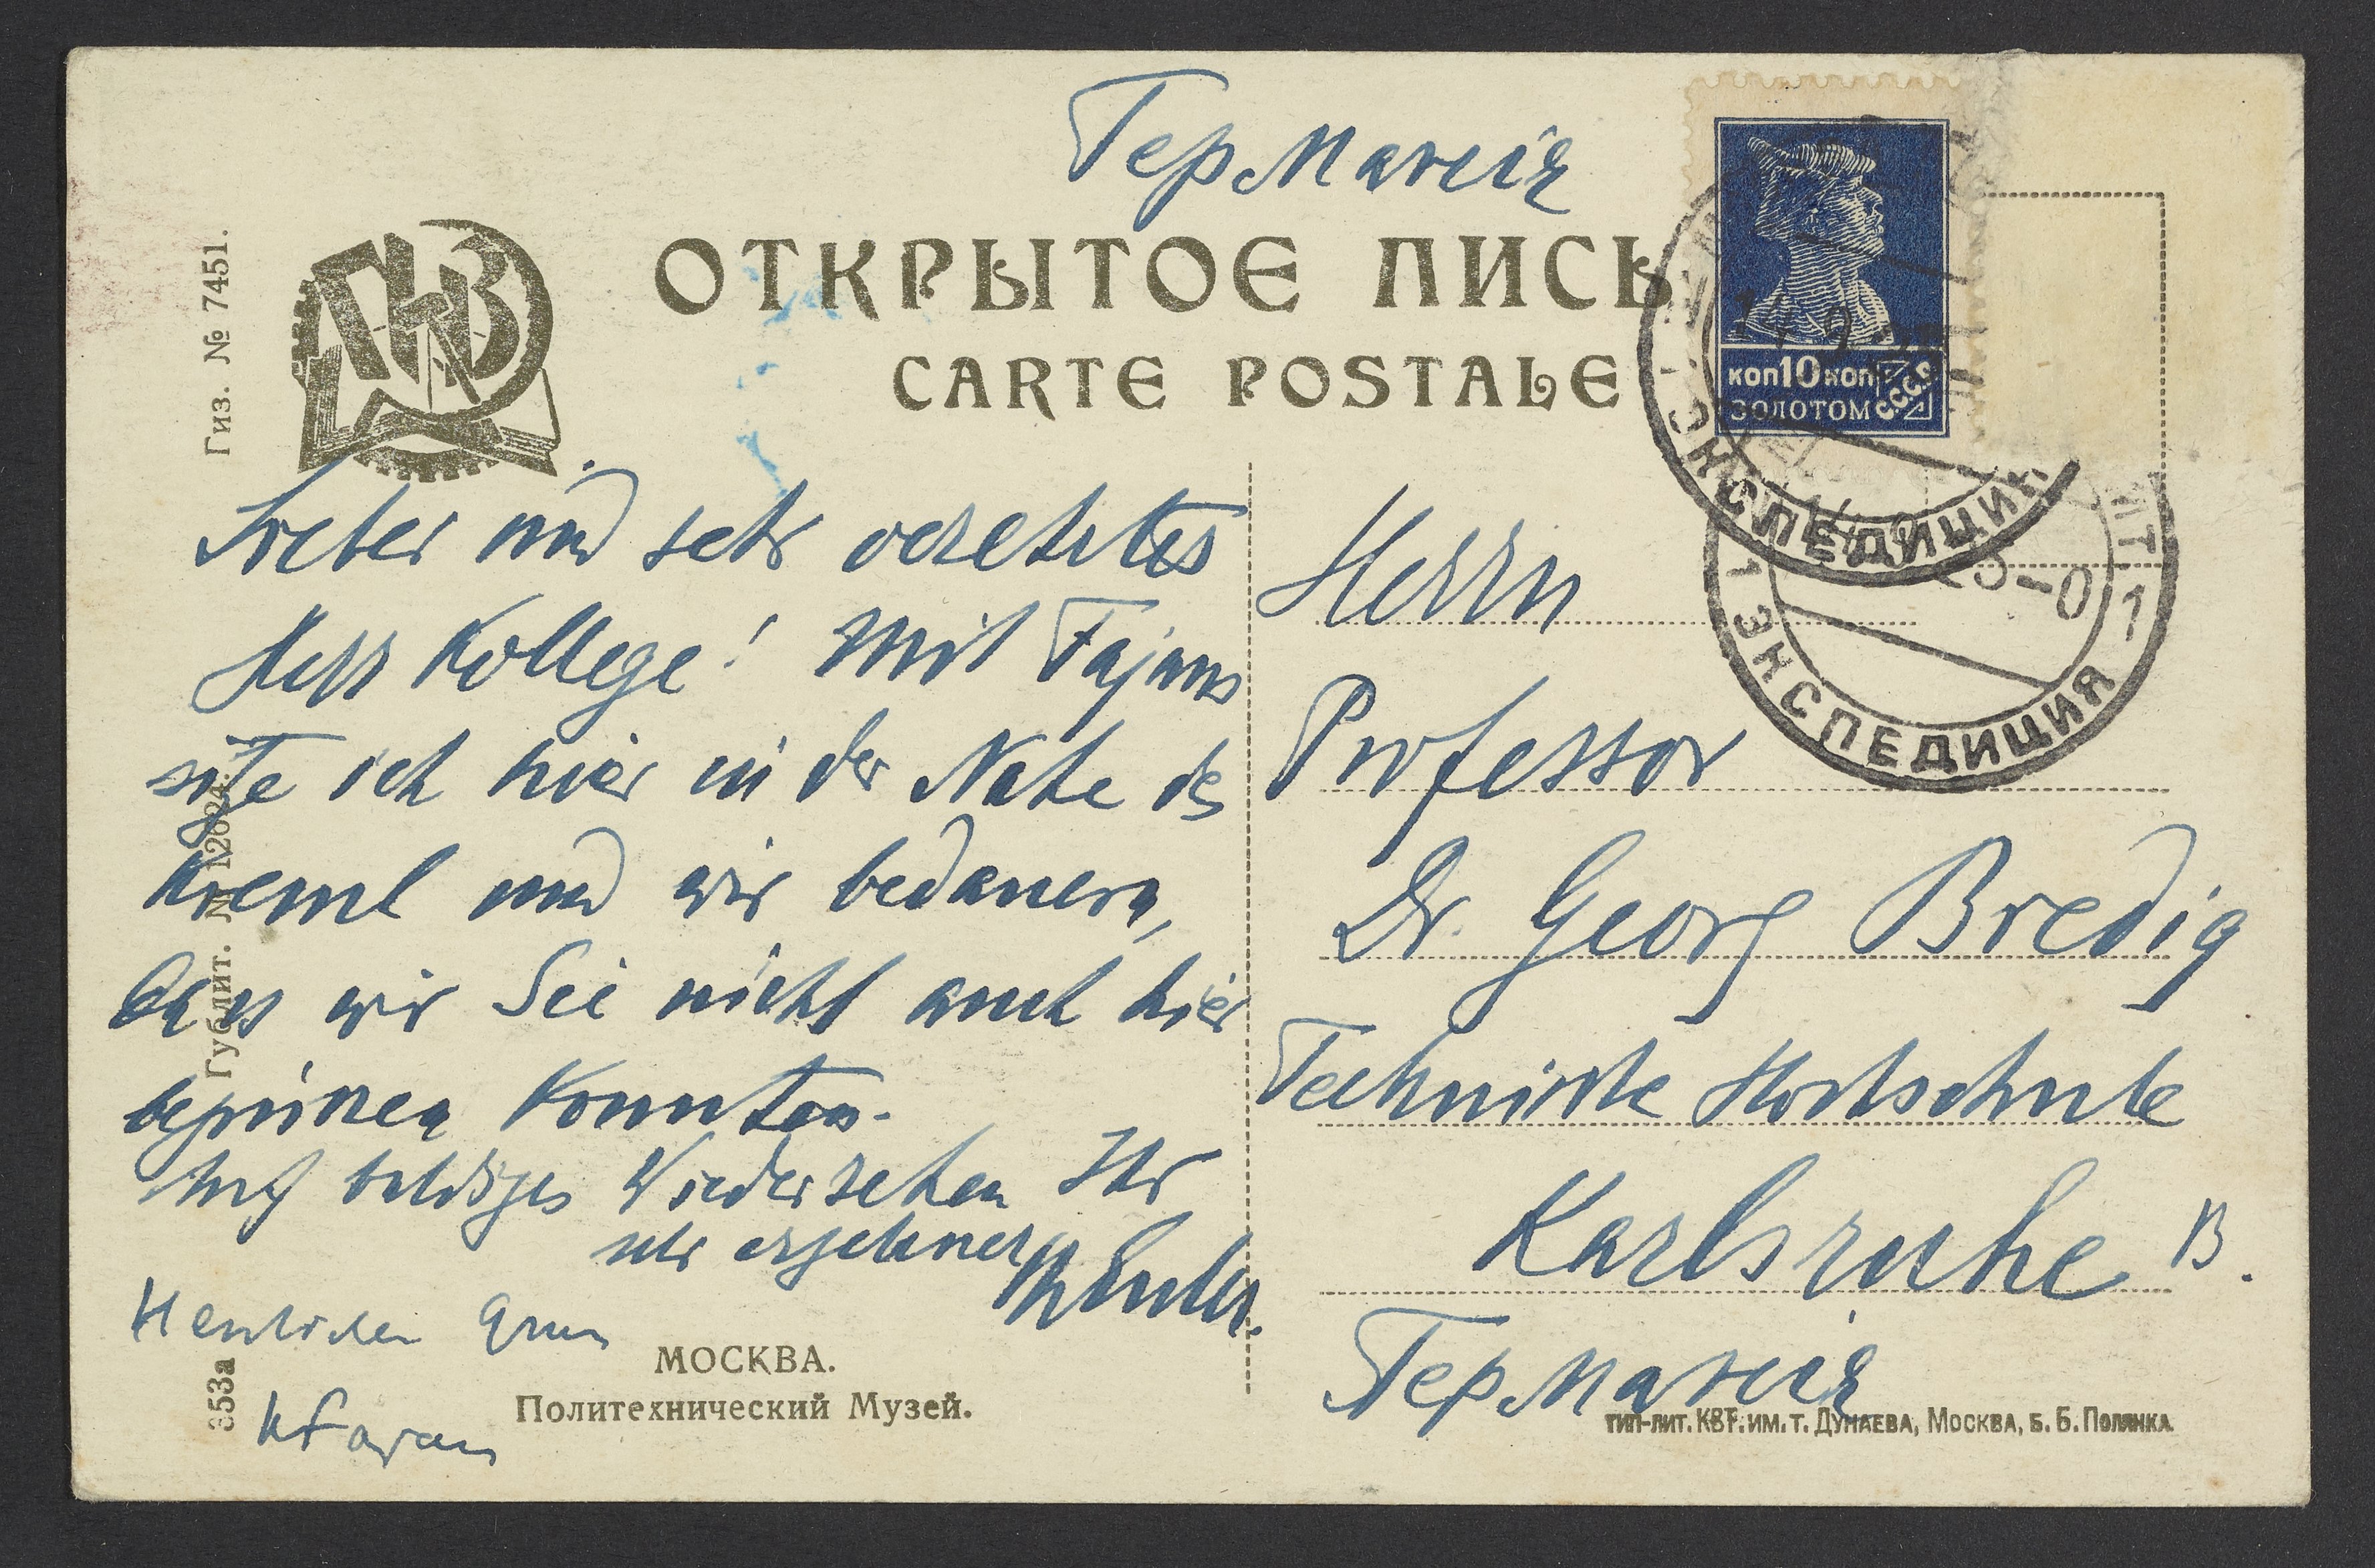 Германія
ОТКРЫТОЕ ПИСЬ
CARTE POSTALE
коп 10 коп
ЗОЛОТОМ
С.С.С.Р.
ЭКСПЕДИЦИЯ
1 ЭКСПЕДИЦИЯ 1
Гиз. № 7451.
ЛКВ
Lieber und sehr verehrtes
Herr Kollege! Mit Fajans
sitze ich hier in der Nähe des
Kreml und wir bedauern,
dass wir Sie nicht auch hier
begrüssen konnten.
Auf baldiges Wiedersehen Ihr
sehr ergebener
Herzlichen Gruss
KFajans
Гублит. № 12024.
353а
МОСКВА.
Политехнический Музей.
Herrn
Professor
Dr. Georg Bredig
Technische Hochschule
Karlsruhe B.
Германія
тип-лит. КВТ. им. т. Дунаева, Москва, Б. Б. Полянка.